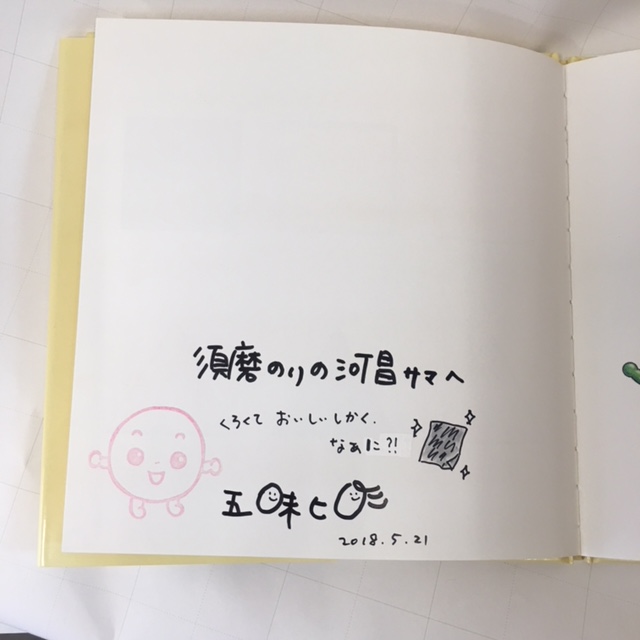 須磨のりの河昌サマへ
くろくて おいしいしかく.
なぁに?!
五味ヒロミ
2018.5.21